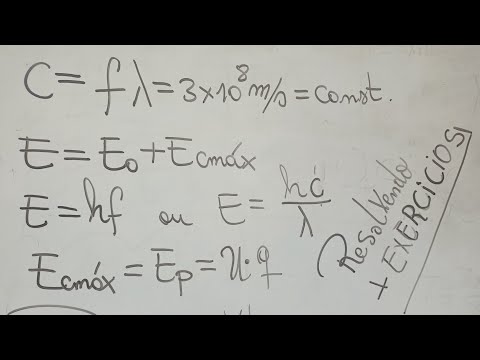 C = fλ = 3×10⁸ m/s = const.
E = E₀ + Ecmáx
E = hf ou E = hc/λ
Ecmáx = Ep = U·q
Resolvendo
+ EXERCÍCIOS